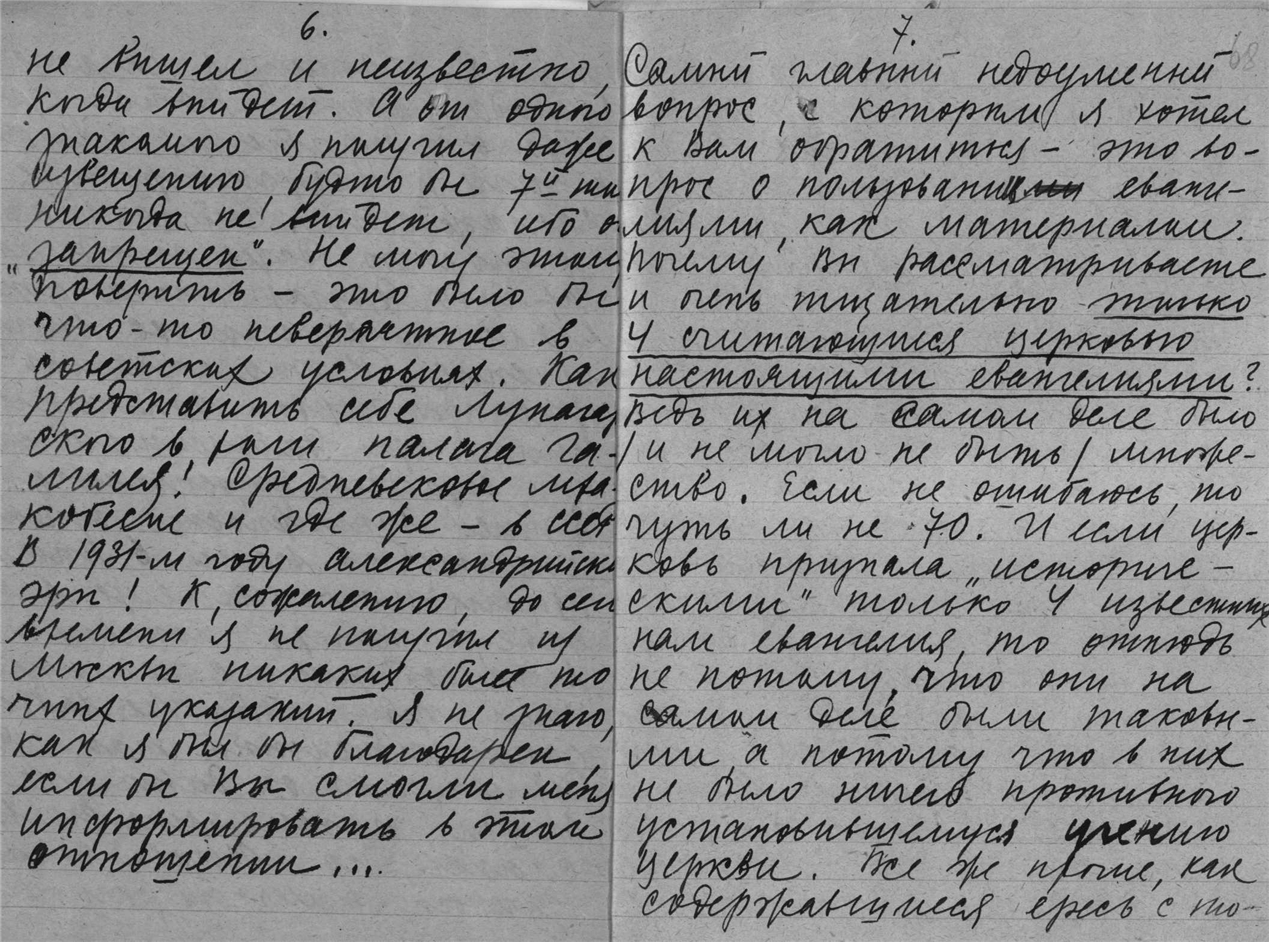 6.
не вышел и неизвестно,
когда выйдет. А от одного
знакомого я получил даже
извещению, будто бы 7й том
никогда не выйдет, ибо он
„запрещен“. Не могу этому
поверить – это было бы
что-то невероятное в
советских условиях. Как
представить себе Луначар
ского в роли палача Га-
лилея! Средневековое мра
кобесие и где же – в СССР
В 1931-м году александрийской
эры! К сожалению, до сей
времени я не получил из
Москвы никаких более то
чных указаний. Я не знаю,
как я был бы благодарен,
если бы Вы смогли меня
информировать в этом
отношении...
7.
68
Самый главный недоуменный
вопрос, с которым я хотел
к Вам обратиться – это во-
прос о пользовании еванге-
лиями, как материалом.
Почему Вы рассматриваете
и очень тщательно только
4 считающиеся церковью
настоящими евангелиями?
Ведь их на самом деле было
/и не могло не быть/ множе-
ство. Если не ошибаюсь, то
чуть ли не 70. И если цер-
ковь признала „историче-
скими“ только 4 известных
нам евангелия, то отнюдь
не потому, что они на
самом деле были таковы-
ми, а потому что в них
не было ничего противного
установившемуся учению
церкви. Все же прочие, как
содержавшиеся ересь с то-